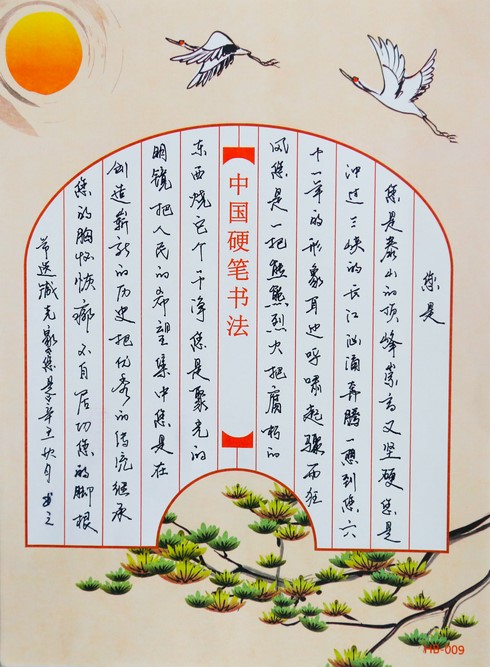 您是
您是泰山的顶峰崇高又坚硬您是
冲过三峡的长江汹涌奔腾一想到您六
十一年的形象耳边呼啸起骤雨狂
风您是一把熊熊烈火把腐朽的
中国硬笔书法
东西烧它个干净您是聚光的
明镜把人民的希望集中您是在
创造崭新的历史把优秀的传统继承
您的胸怀恢廓不自居功您的脚根
节选臧克家您是
HB-009